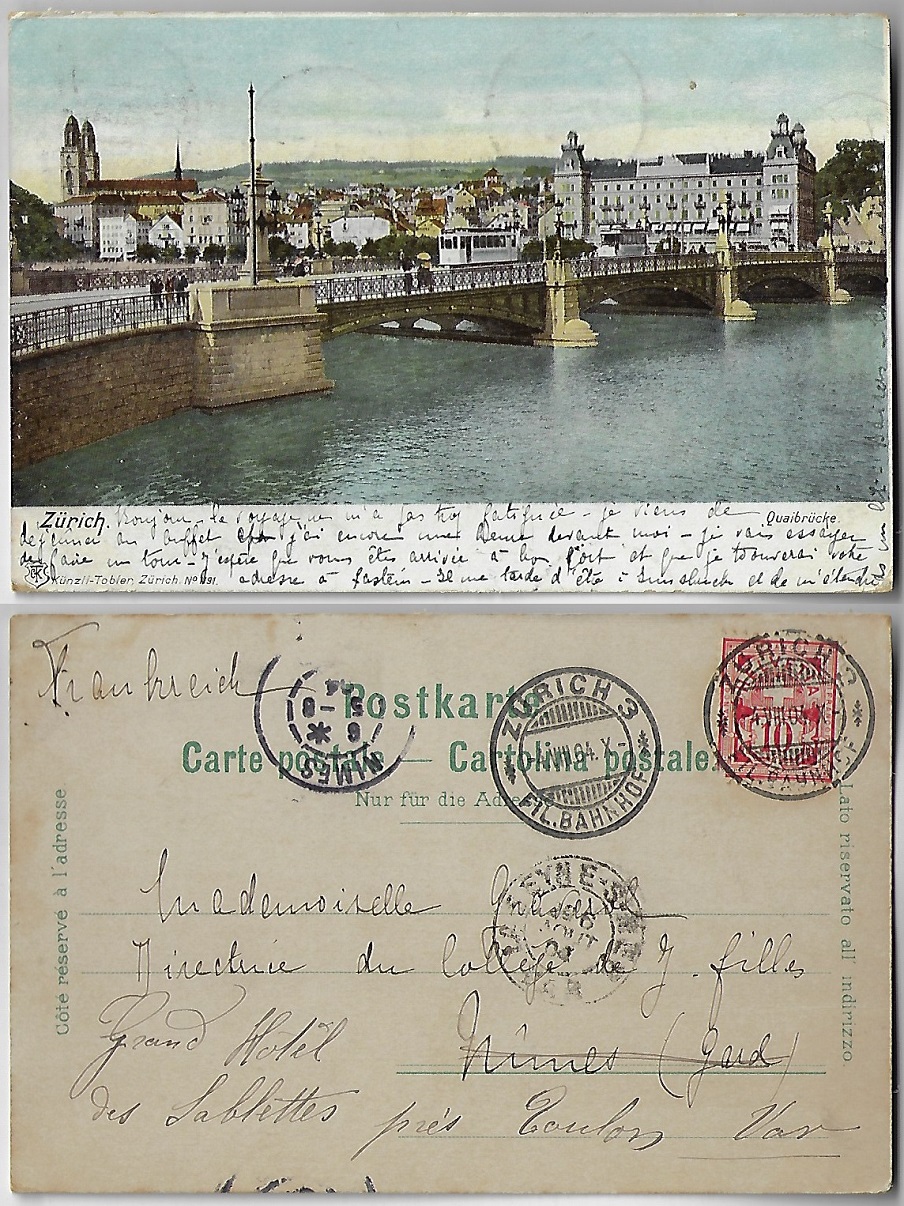 Zürich. Bonjour - le voyage ne m'a pas trop fatiguée - je viens de
Quaibrücke.
déjeuner au buffet j'ai encore une heure devant moi - je vais essayer
de faire un tour - J'espère que vous êtes arrivée à bon port et que je trouverai votre
Künzli-Tobler, Zürich. No
adresse à Gastein - Il me tarde d'être à Innsbruck et de m'étendre
Frankreich
Postkarte
Carte postale — Cartolina postale.
Nur für die Adresse
NIMES
ZÜRICH 3
VIII.04.X-
FIL. BAHNHOF
ZÜRICH 3
VIII.04.X-
FIL. BAHNHOF
10
Côté réservé à l'adresse
Lato riservato all' indirizzo.
LA SEYNE-SUR-MER
AOUT
04
VAR
Mademoiselle
Directrice du Collège de J. filles
Nîmes (Gard)
Grand Hôtel
des Sablettes près Toulon Var